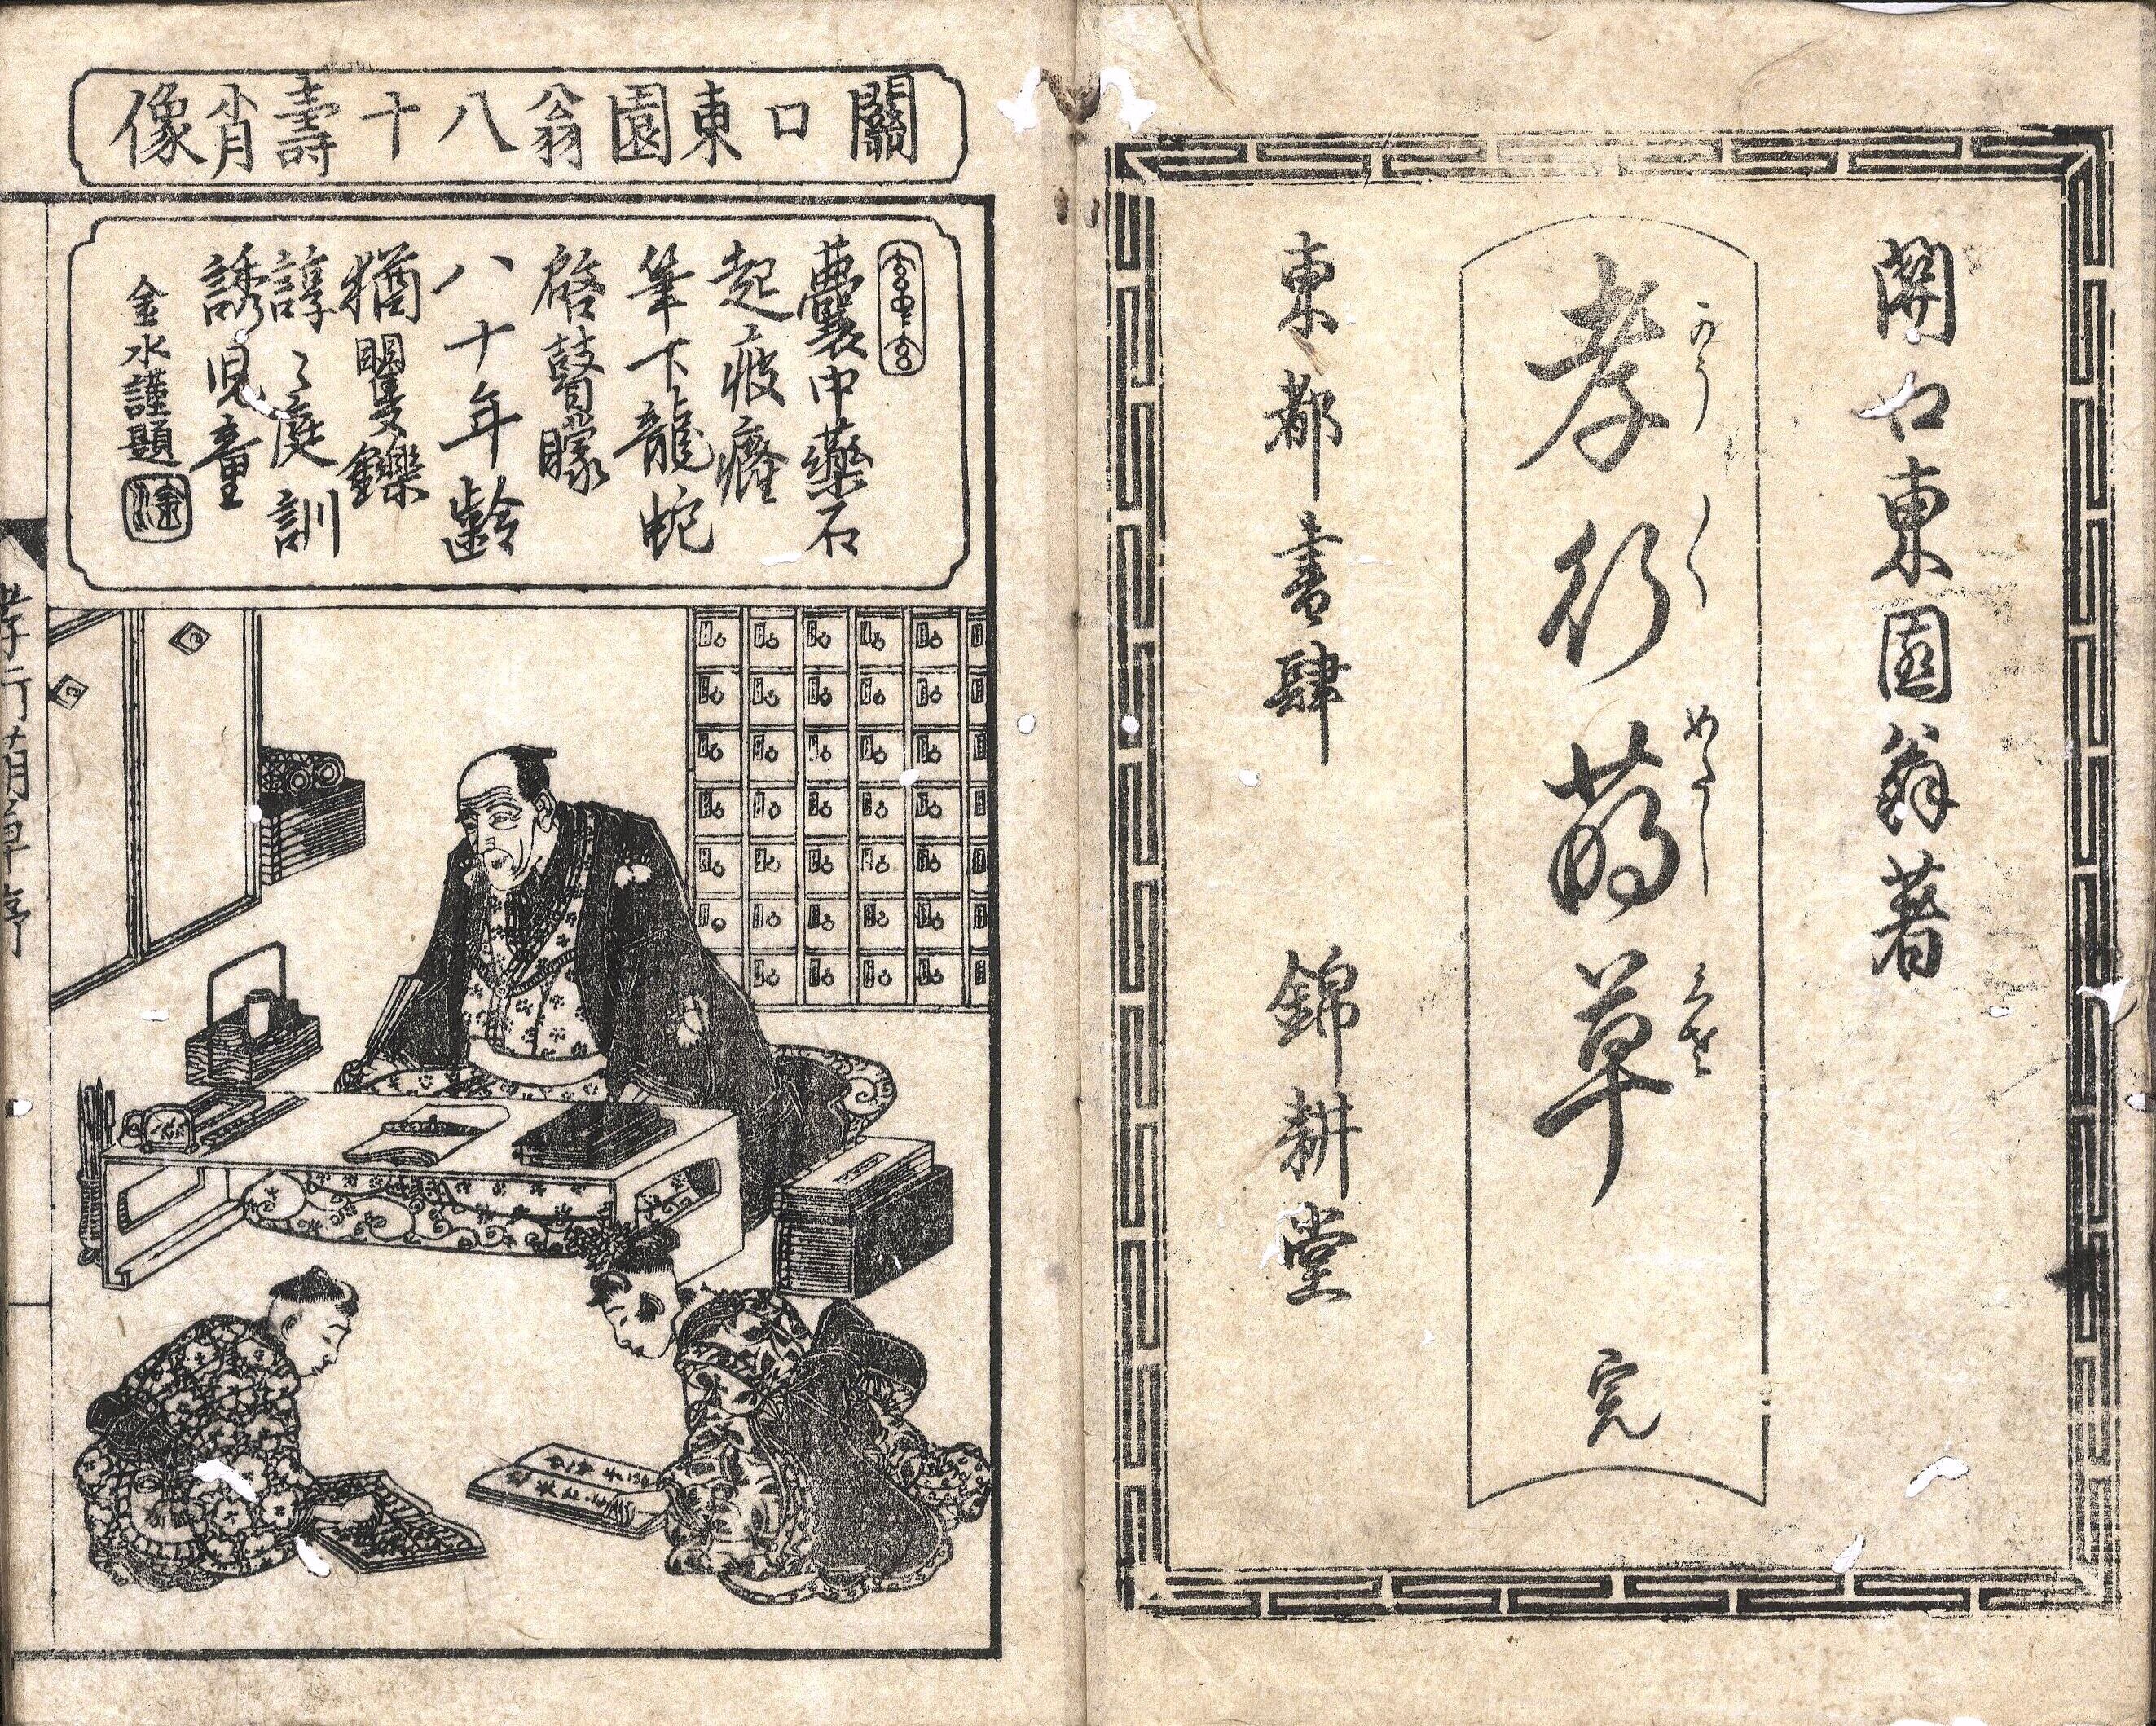 關口東園翁著
孝行萌草 完
東都書肆 錦耕堂
關口東園翁八十壽肖像
囊中藥石
起疲癃
筆下龍蛇
啓瞽矇
八十年齡
猶矍鑠
諄〻庭訓
誘児童
金水謹題
孝行萌草序